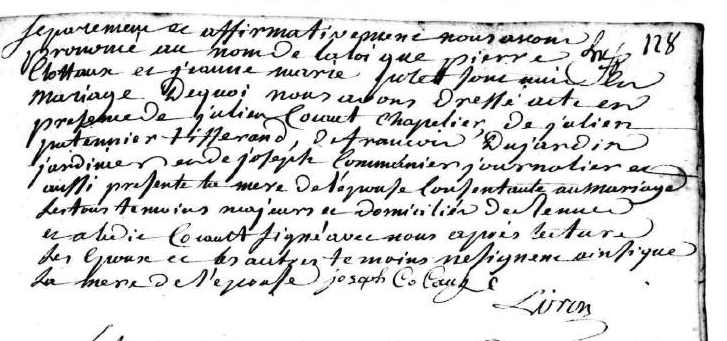 separement et affirmativement nous avons
prononcé au nom de la loi que pierre 128
Clottaux et jeanne marie sont unis en
mariage Dequoi nous avons dressé acte en
presence de julien Couaut Chapelier, de julien
tisserand, de francois Dujardin
jardinier et de joseph Commenier journalier et
aussi presente la mere de l'épouse Consentante au mariage
Les tous temoins majeurs et domiciliés de Rennes
et a ledit Couaut signé avec nous après lecture
Les Epoux et les autres temoins ne signent ainsi que
La mere de l'epouse joseph